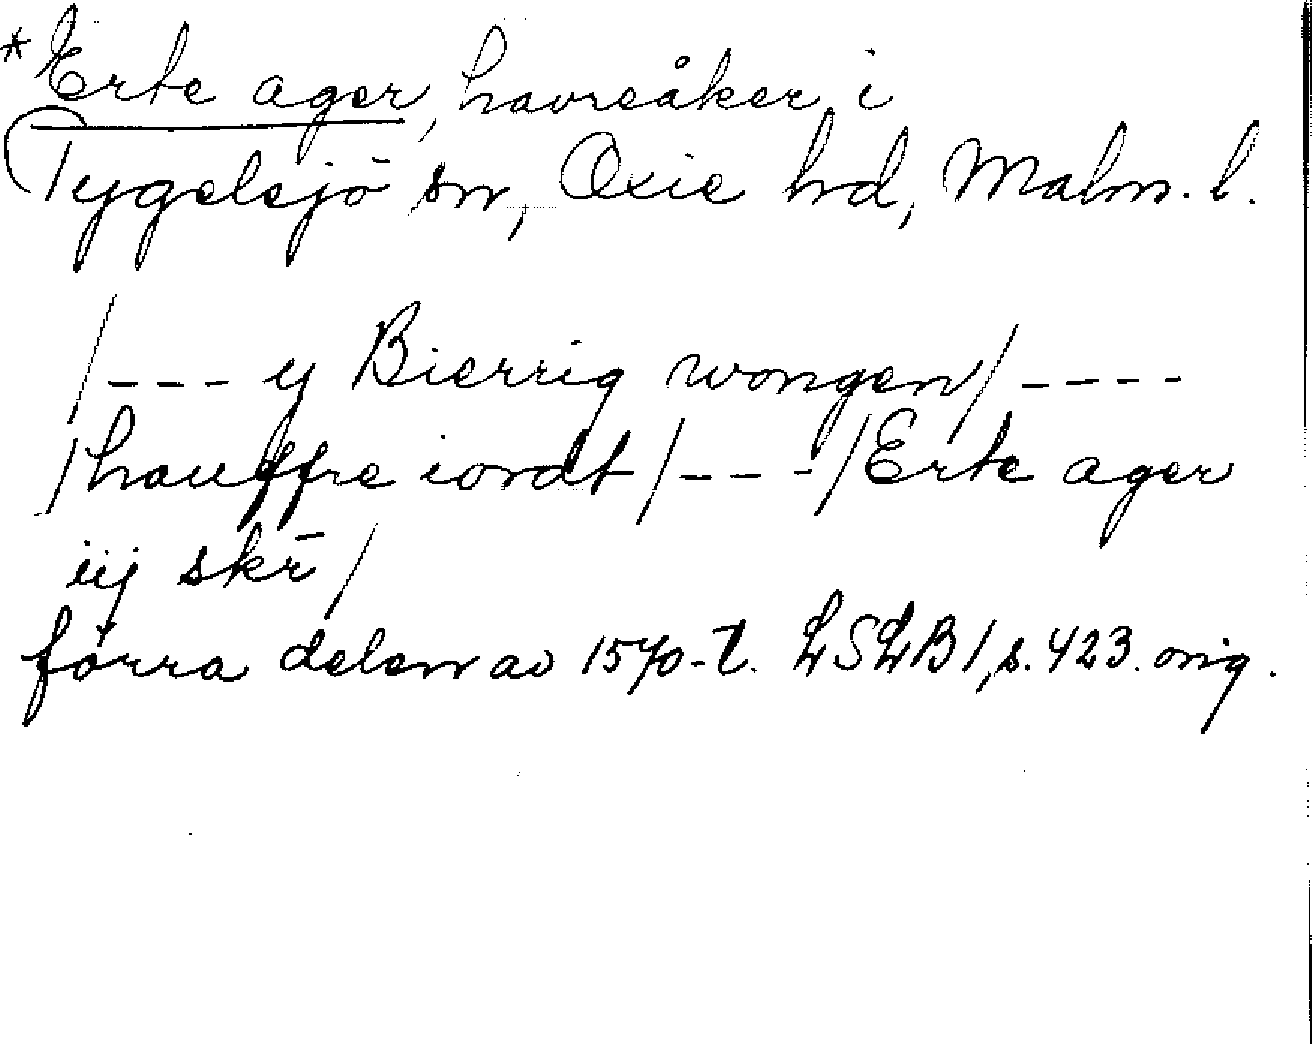 *Erte ager, havreåker i
Tygelsjö sn, Oxie hd, Malm. l.
/--- y Bierrig wongen/----
/hauffre iordt/---/Erte ager
iij skr̄/
förra delen av 1570-t. LSLB1, s. 423. orig.